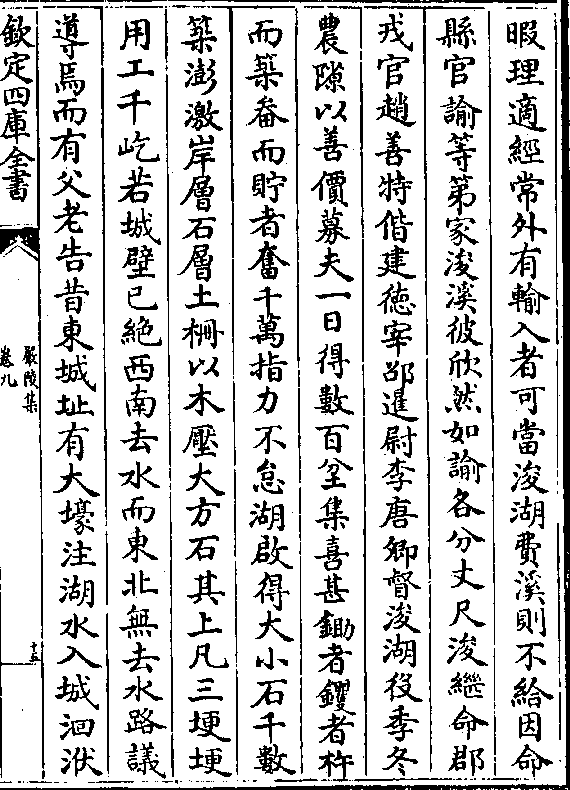 暇理適經常外有輸入者可當浚湖費溪則不給因命
縣官諭等第家浚溪彼欣然如諭各分丈尺浚繼命郡
戎官趙善特偕建徳宰邵暹尉李唐卿督浚湖役季冬
農隙以善價募夫一日得數百坌集喜甚鋤者钁者杵
而築畚而貯者奮千萬指力不怠湖啟得大小石千數
築澎激岸層石層土柵以木壓大方石其上凡三埂埂
用工千屹若城壁已絶西南去水而東北無去水路議
導焉而有父老告昔東城址有大壕注湖水入城洄洑
欽定四庫全書
嚴陵集
卷九
十五